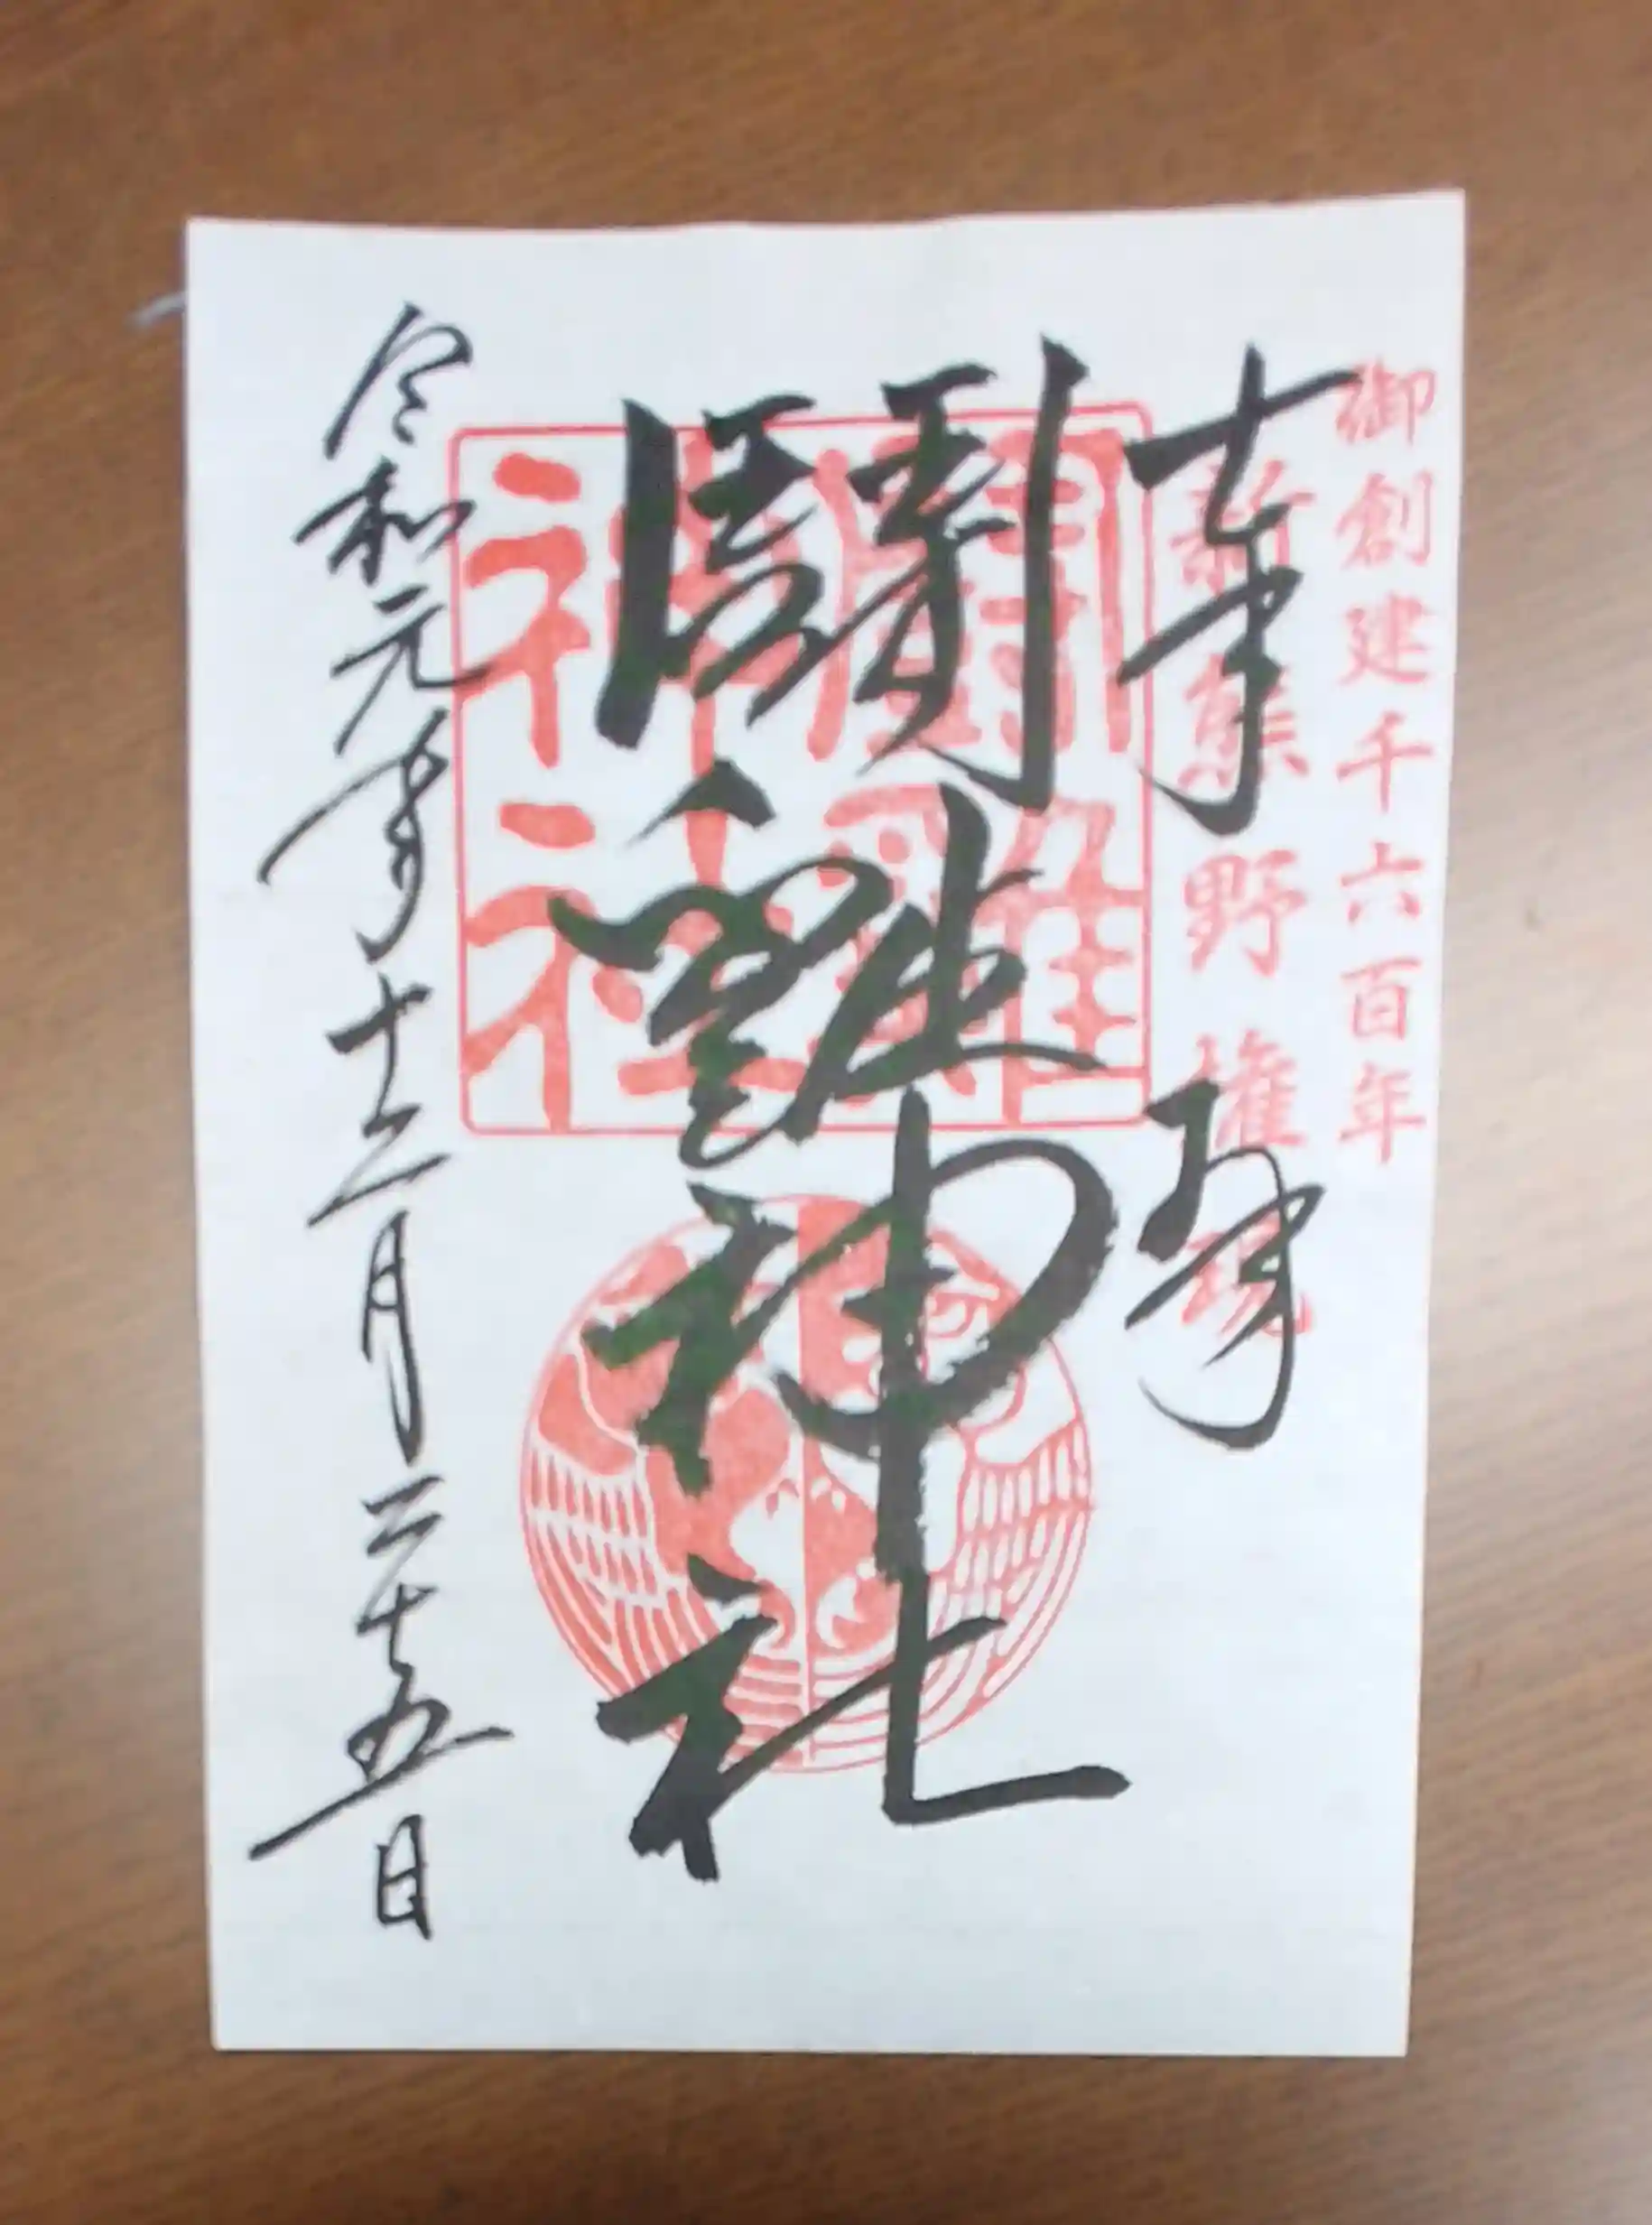 御創建千六百年
新熊野権現
奉拝
闘雞神社
闘雞神社
令和元年十二月二十五日